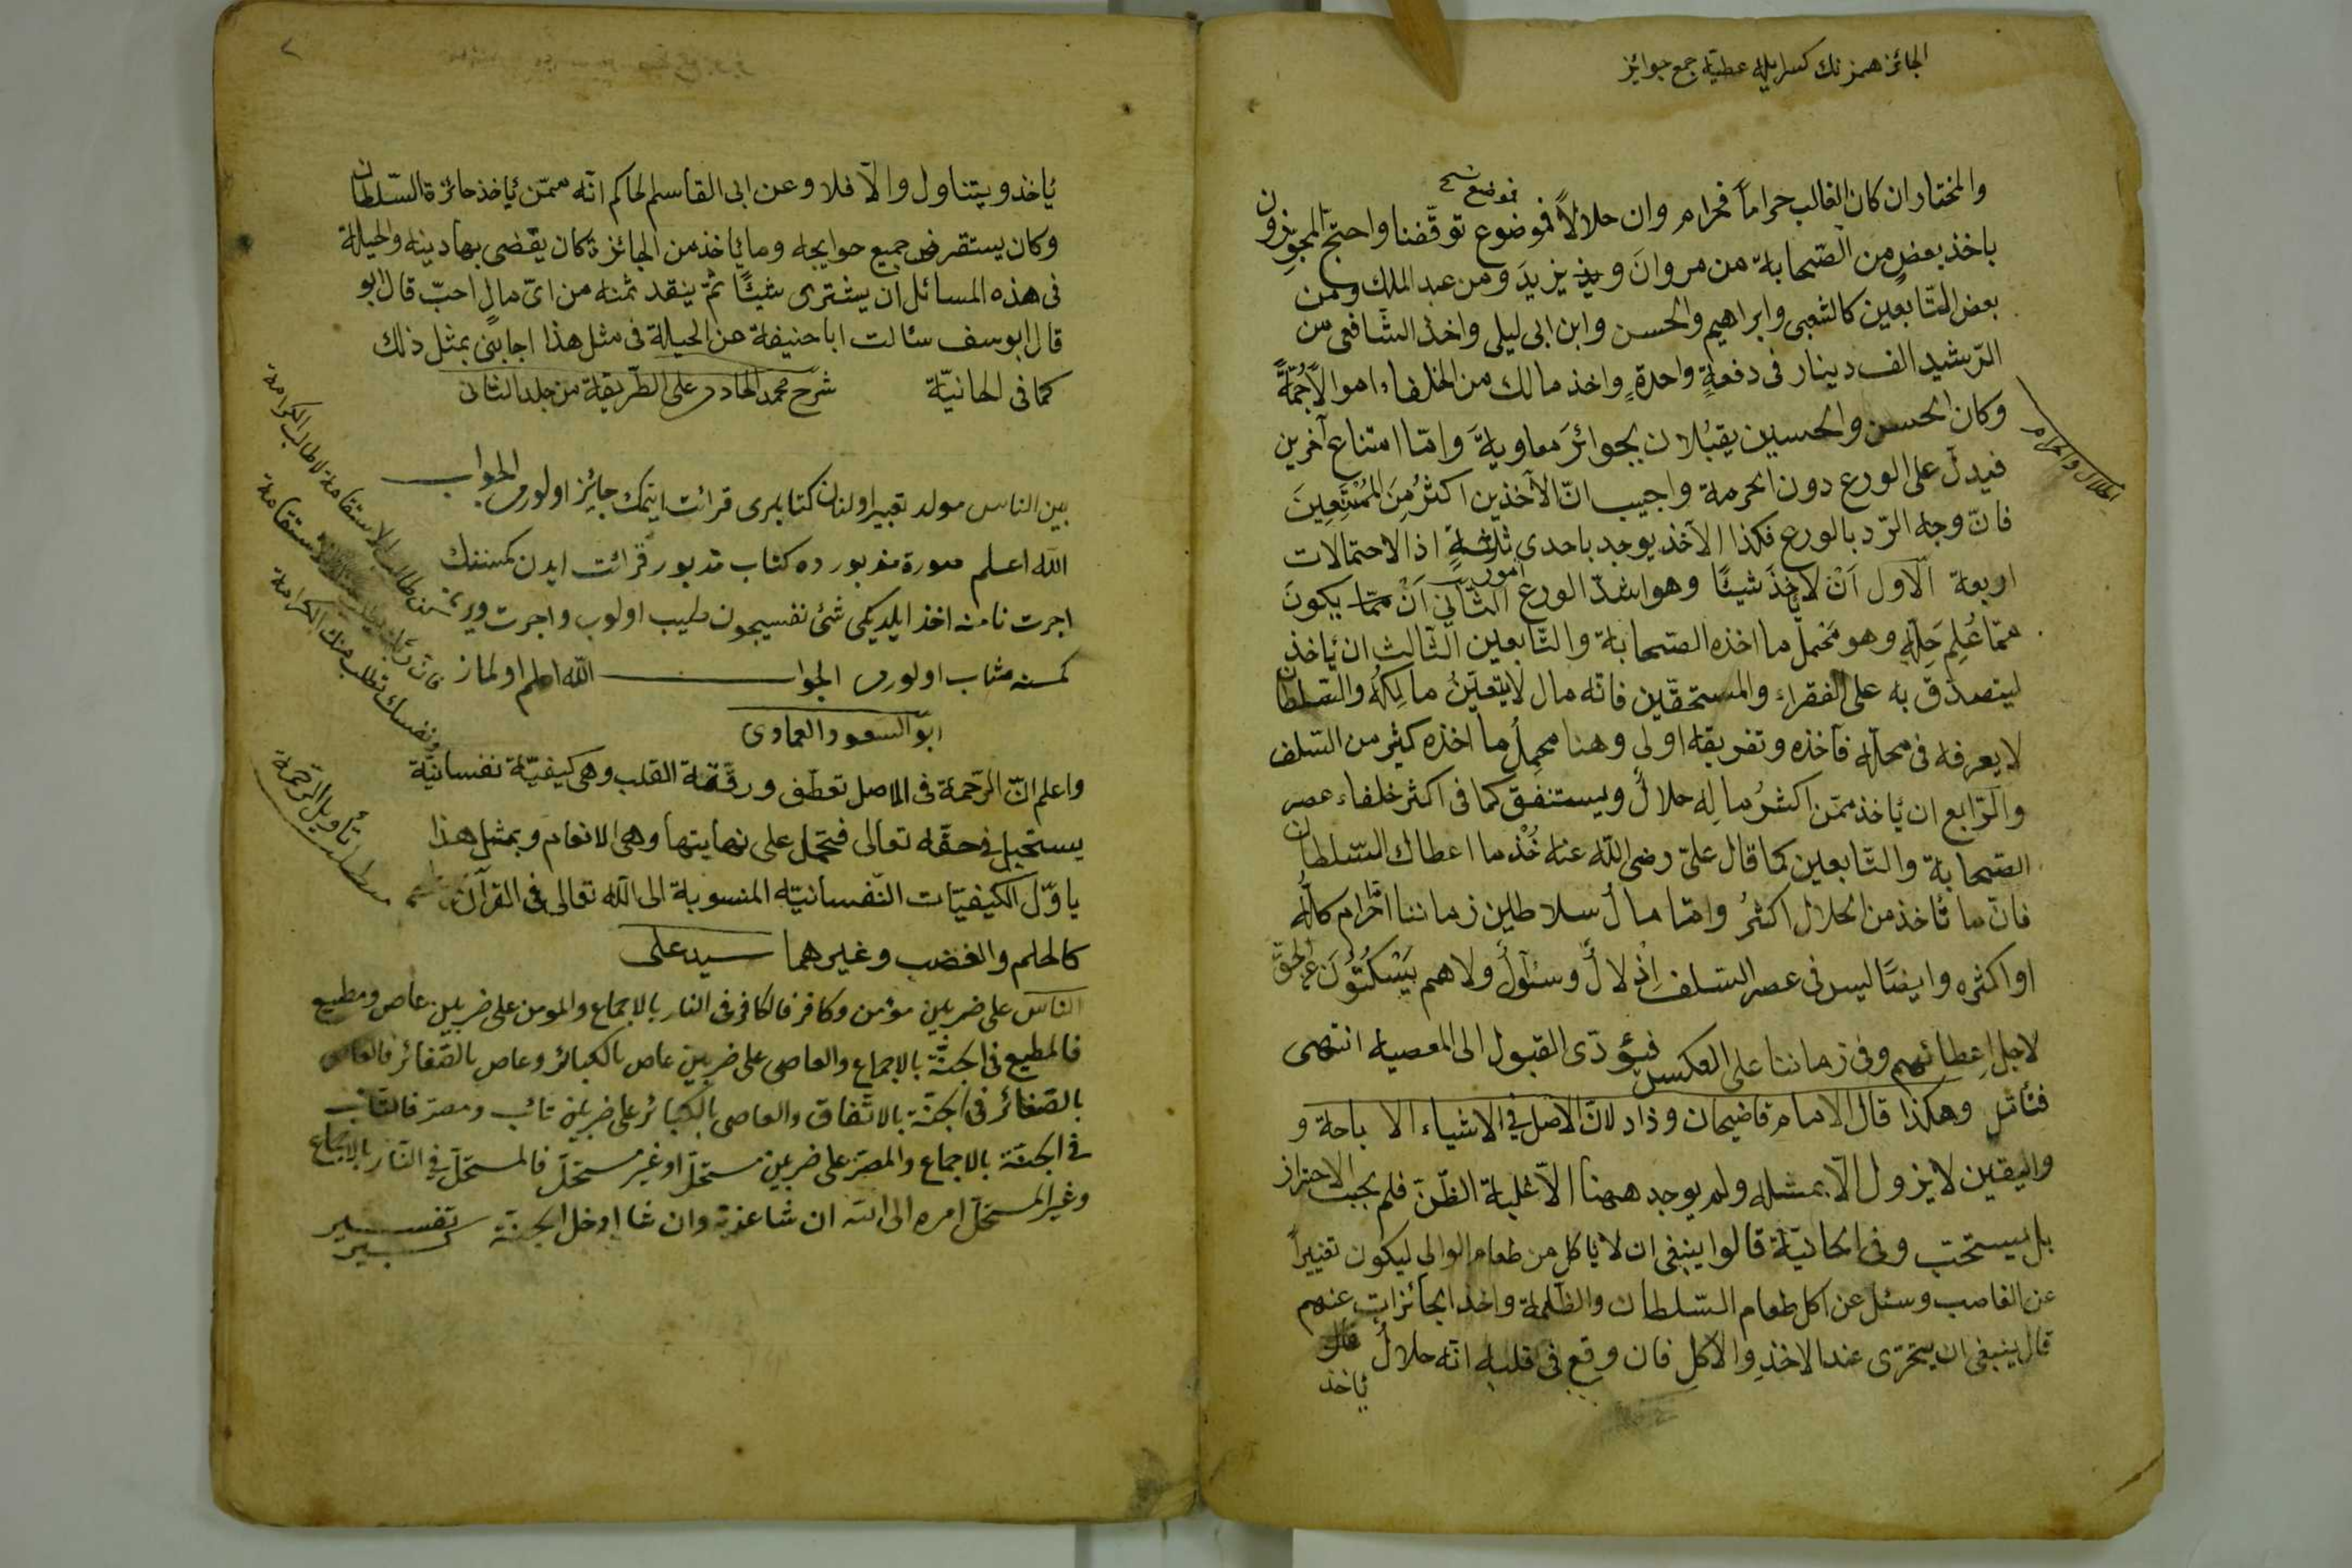 الجائز همزنك كسرايله عطيّه جمع جوائز
والمختار ان كان الغالب حراماً فحرام وان حلالاً فموضوع توقّفنا واحتجّ المجوّزون
فموضع نسخ
باخذ بعض من الصّحابة من مروانَ ويزيدَ ومن عبد الملك ومن
بعض التّابعين كالشعبى وابراهيم والحسن وابن ابى ليلى واخذ الشّافعى من
الرّشيد الف دينار فى دفعةٍ واحدةٍ واخذ مالك من الخلفاء اموالاً جُمّةً
وكان الحسن والحسين يقبُلان بجوائزَ معاويةَ وامّا امتناع آخرين
الحلال والحرام
فيدلّ على الورع دون الحرمة واجيب انّ الآخذين اكثرُ مِنَ المُمْتَنِعِينَ
فانّ وجه الرّد بالورع فكذا الآخذ يوجد باحدى ثلثةٍ اذ الاحتمالات
امور
اربعة الاول اَنْ لا يأخذَ شيئًا وهو اشدّ الورع الثّانى اَنْ يكونَ
ممّا عُلِمَ حِلّه وهو مَحْمِل ما اخذه الصّحابة والتّابعين الثّالث ان يأخذ
ليتصدّق به على الفقراء والمستحقّين فانّه مال لا يتعيّنُ مالِكُه والسّلطان
لا يعرفه فى محلّه فآخذه وتفريقه اولى وهنا محمِلُ ما اخذه كثير من السّلف
والرّابع ان يأخذ ممّن اكثرُ مالِه حلالٌ ويستنفق كما فى اكثر خلفاء عصر
الصّحابة والتّابعين كما قال علىّ رضى اللّه عنه خُذْ ما اعطاك السّلطان
فانّ ما تأخذ من الحلال اكثرُ وامّا مالُ سلاطين زماننا حرام كلُّه
او اكثره وايضًا ليس فى عصر السّلف اِذْلالٌ وسئوالٌ ولا هم يَسْكُتُونَ عن الحقّ
لاجل اِعطائهم وفى زماننا على العكس فيؤدّى القبول الى المعصيه انتهى
فتأمّل وهكذا قال الامام قاضيخان وزاد لانّ الاصل فى الاشياء الاباحة و
واليقين لا يزول الّا بمثله ولم يوجد ههنا الّا غلبة الظّنّ فلم يجب الاحتراز
بل يستحبّ وفى الخانيّة قالوا ينبغى ان لا يأكل من طعام الوالى ليكون تغييراً
عن الغاصب وسئل عن اكل طعام السّلطان والظّلمة واخذ الجائزات عنهم
قال ينبغى ان يتحرّى عند الاخذِ والاكلِ فان وقع فى قلبه انّه حلالٌ
يأخذ
٢
يأخذ ويتناول والّا فلا وعن ابى القاسم الحاكم انّه ممّن يأخذ جائزة السّلطان
وكان يستقرض جميع حوايجه وما يأخذ من الجائزة كان يقضى بها دينه والحيلة
فى هذه المسائل ان يشترى شيئًا ثمّ ينقد ثمنه من اىّ مالٍ احبّ قال ابو
قال ابوسف سئالت ابا حنيفة عن الحيلة فى مثل هذا اجابنى بمثل ذلك
كما فى الخانيّة شرح محمد الخادمى على الطّريقة من جلد الثّانى
بين الناس مولد تعبير اولنان كتابلرى قرائت ايتمك جايز اولورمى الجواب
اللّه اعلم صورة مزبورده كتاب مزبور قرائت ايدن كمسنه نك
اجرت نامنه اخذ ايلديكى شئ نفسيچون طيب اولوب واجرت ويرن
كمسنه مثاب اولورمى الجواب اللّه اعلم اولماز
ابو السعود العمادى
كن طالب الاستقامة لا طالب الكرامة
ونفسك تطلب منك الكرامة
واعلم انّ الرّحمة فى الاصل تعطّف ورقّة القلب وهى كيفيّة نفسانيّة
يستحيل فى حقّه تعالى فتحمل على نهايتها وهى الانعام وبمثل هذا
يأوّل الكيفيّات النّفسانيّه المنسوبة الى اللّه تعالى فى القرآن
كالحلم والغضب وغيرهما سيد على
مطلب تأويل الرّحمة
النّاس على ضربين مؤمن وكافر فالكافر فى النار بالاجماع والمومن على ضربين عاص ومطيع
فالمطيع فى الجنّة بالاجماع والعاصى على ضربين عاص بالكبائر وعاص بالصّغائر فالعاصى
بالصّغائر فى الجنّة بالاتّفاق والعاصى بالكبائر على ضربين تائب ومصرّ فالتّائب
فى الجنّة بالاجماع والمصرّ على ضربين مستحلّ او غير مستحلّ فالمستحلّ فى النّار بالاجماع
وغير المستحلّ امره الى اللّه ان شا عذبه وان شا ادخل الجنّة تفسير كبير